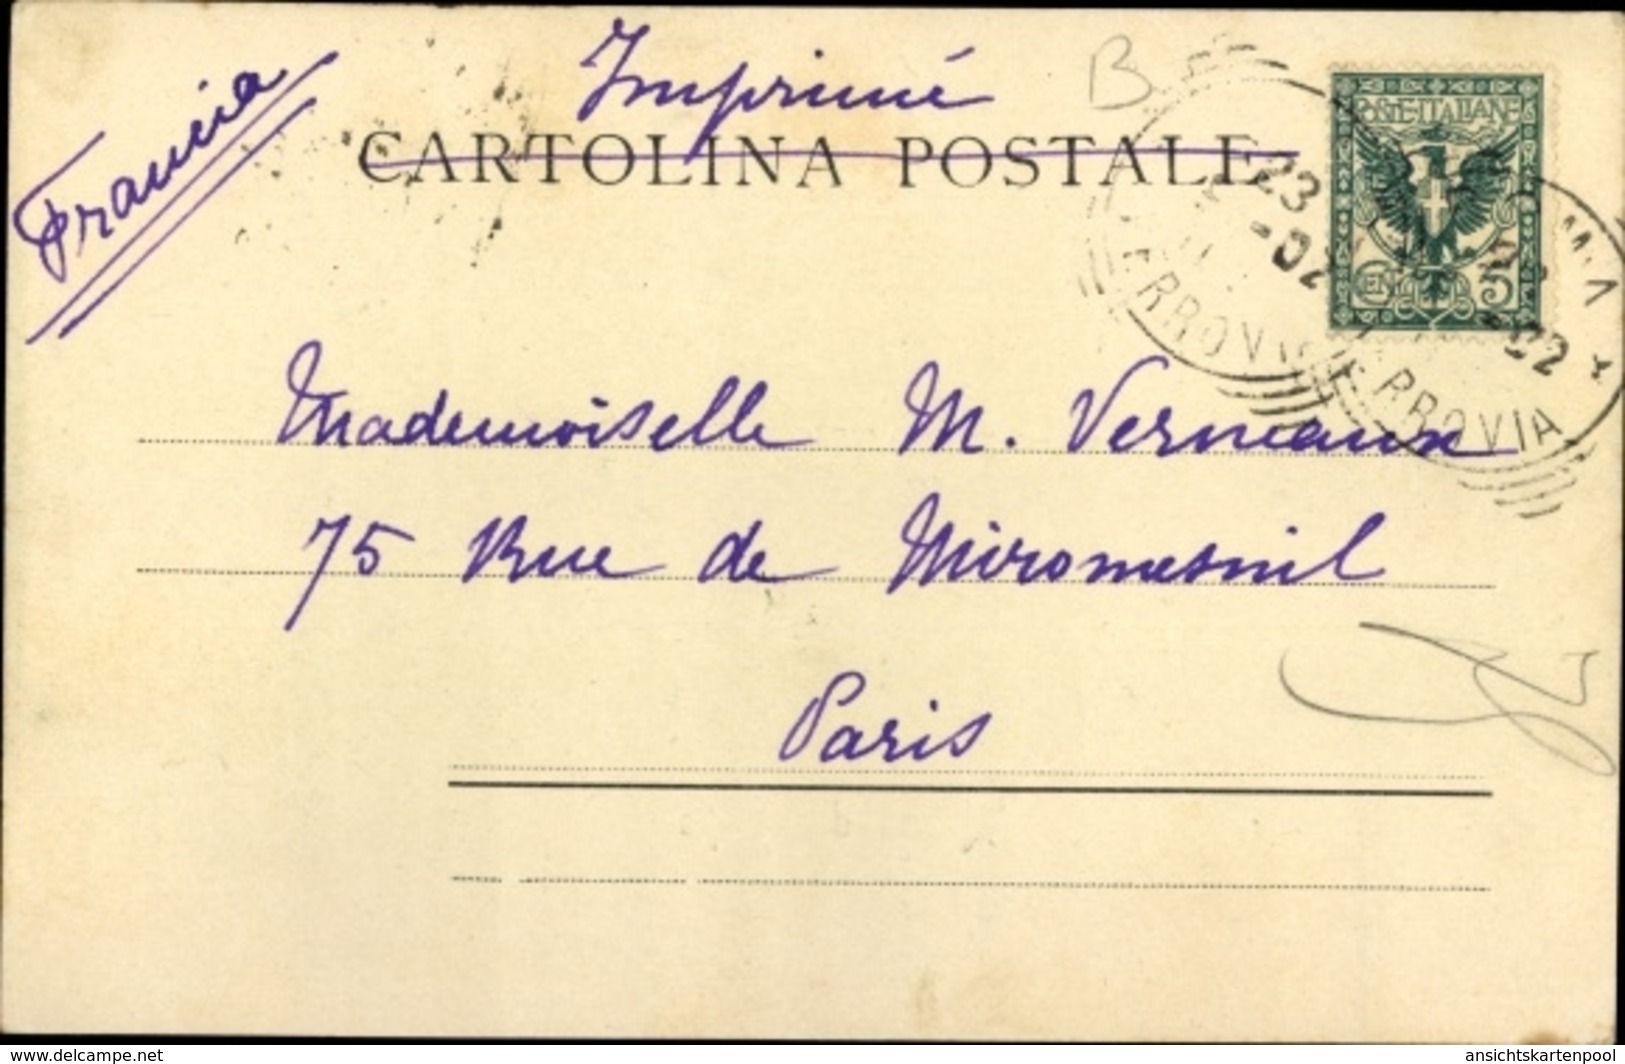 Francia
Imprimé
B
CARTOLINA POSTALE
POSTE·ITALIANE
CEN. 5
23
-02
FERROVIA
-02
FERROVIA
Mademoiselle M. Verneaux
75 Rue de Miromesnil
Paris
www.delcampe.net
ansichtskartenpool